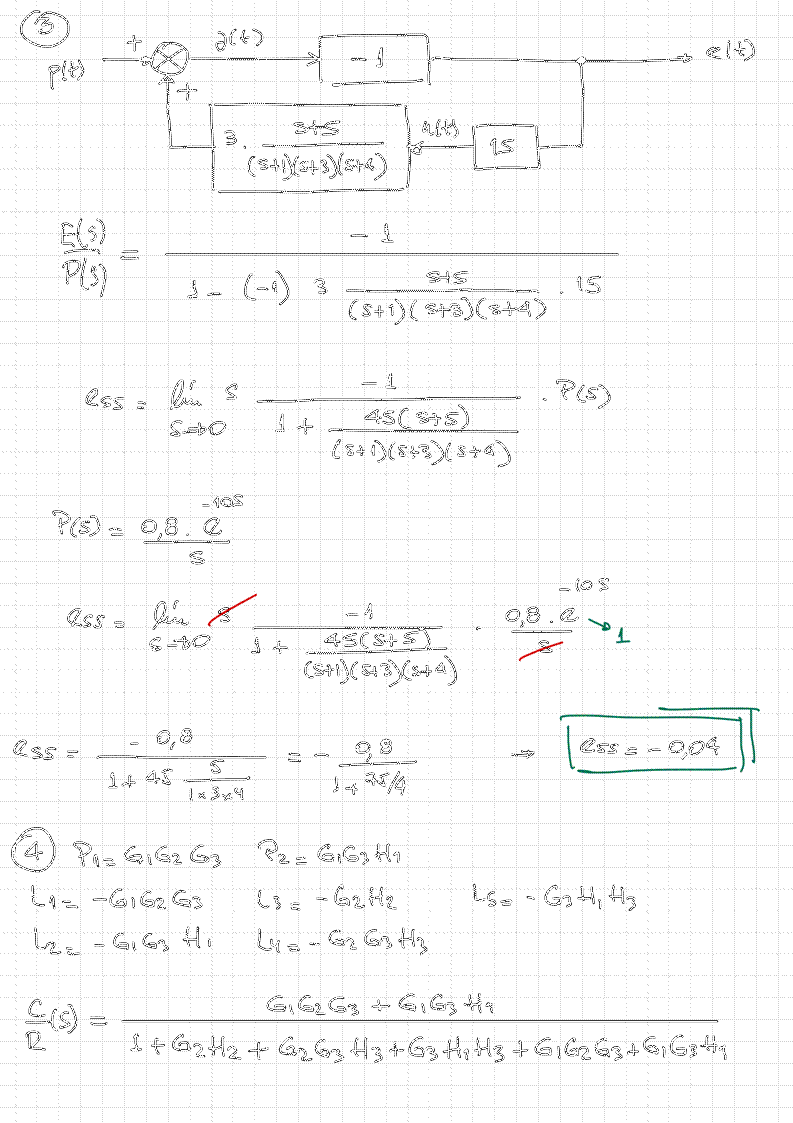 3
+ y(t) - 1 e(t)
p(t)
+
3 . (s+5)/((s+1)(s+3)(s+4)) u(t) 15
E(s)/P(s) = -1 / (1 - (-1) 3 (s+5)/((s+1)(s+3)(s+4)) . 15)
ess = lím s→0 s -1 / (1 + 45(s+5)/((s+1)(s+3)(s+4))) . P(s)
P(s) = 0,8 . e^-10s / s
ess = lím s→0 s -1 / (1 + 45(s+5)/((s+1)(s+3)(s+4))) . 0,8 . e^-10s / s → 1
ess = - 0,8 / (1 + 45 5/(1×3×4)) = - 0,8 / (1 + 75/4) → ess = - 0,04
4 P1 = G1G2G3 P2 = G1G3H1
L1 = -G1G2G3 L3 = -G2H2 L5 = -G3H1H3
L2 = -G1G3H1 L4 = -G2G3H3
C/R (s) = (G1G2G3 + G1G3H1) / (1 + G2H2 + G2G3H3 + G3H1H3 + G1G2G3 + G1G3H1)